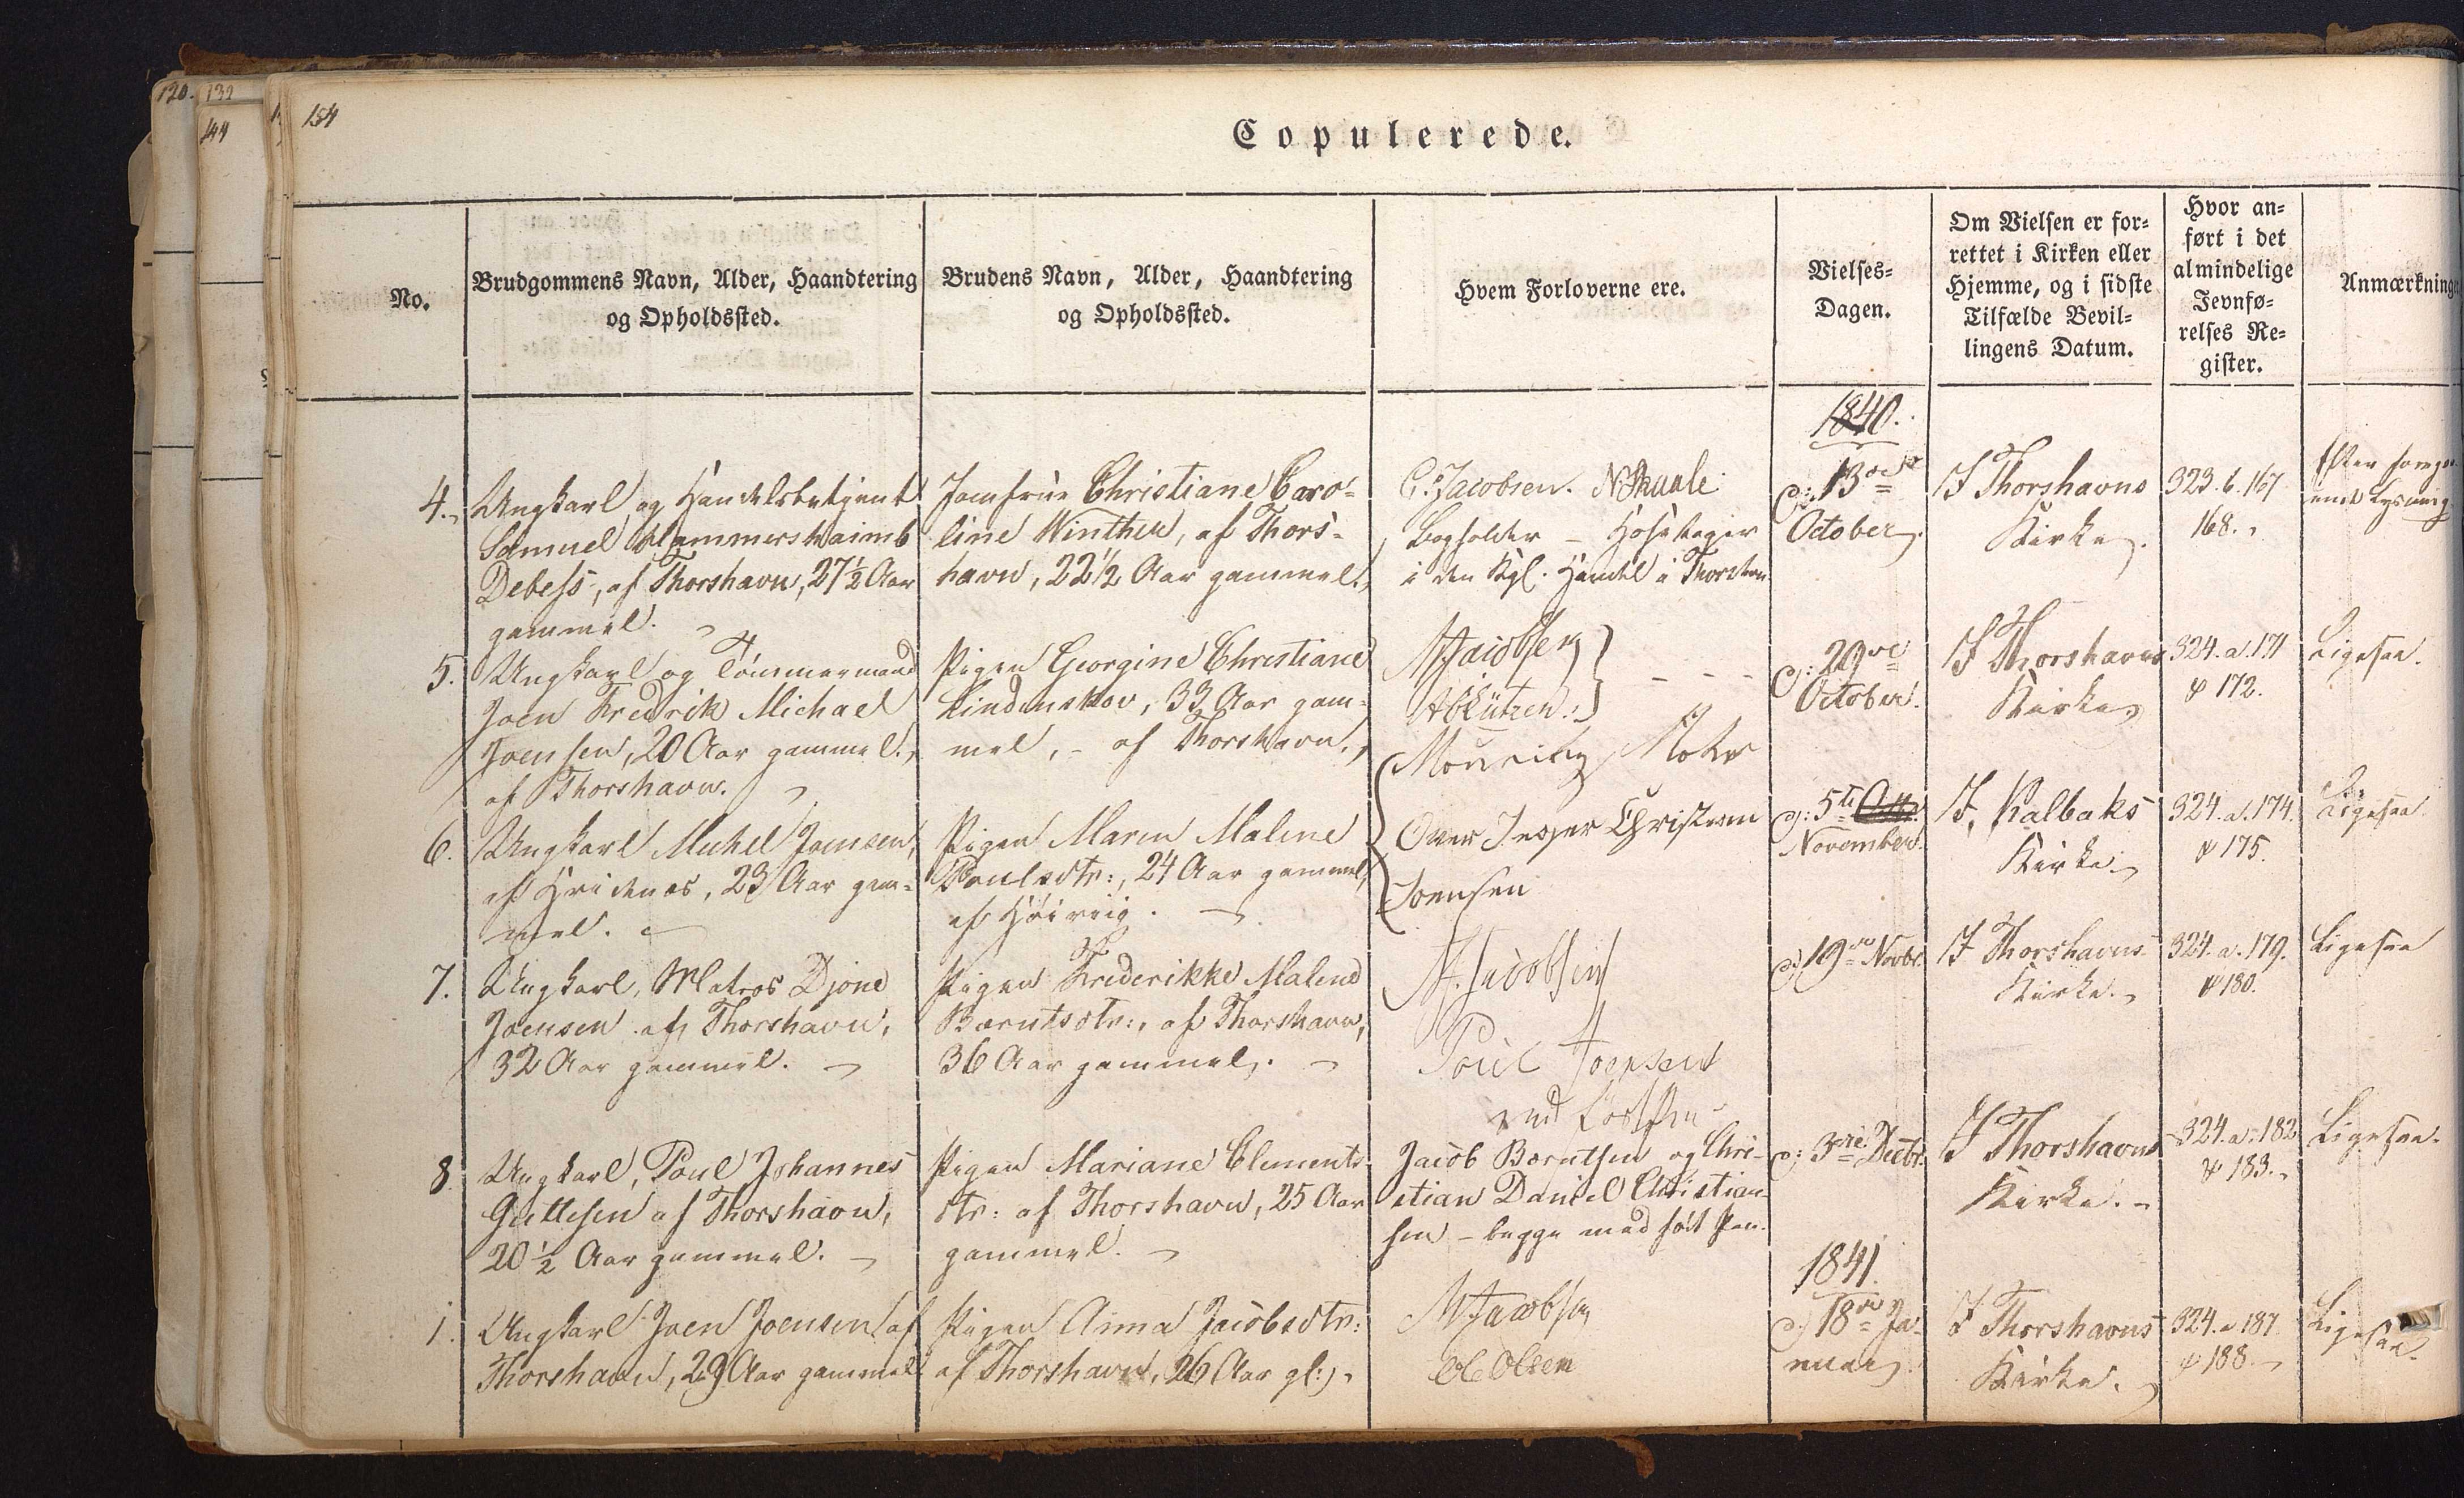 120.
132
144
154
Copulerede.
No.
Brudgommens Navn, Alder, Haandtering
og Opholdssted.
Brudens Navn, Alder, Haandtering
og Opholdssted.
Hvem Forloverne ere.
Vielses-
Dagen.
Om Vielsen er for-
rettet i Kirken eller
Hjemme, og i sidste
Tilfælde Bevil-
lingens Datum.
Hvor an-
ført i det
almindelige
Jevnfø-
relses Re-
gister.
Anmærkninge
1840.
4.
Ungkarl og Handelsbetjent
Samuel Hammershaimb
Debess, af Thorshavn, 27½ Aar
gammel.
Jomfrue Christiane Caro-
line Winther, af Thors-
havn, 22½ Aar gammel.
C. Jacobsen. N Skaale
Bogholder - Hosetager
i den Kgl. Handel i Thorshavn
d: 13de
October
I Thorshavns
Kirke.
323. b. 167
168.
Efter foregaa
ende Lysning
5.
Ungkarl og Tömmermand
Joen Fredrik Michael
Joensen, 20 Aar gammel.,
af Thorshavn.
Pigen Georgine Christiane
Lindenskov, 33 Aar gam-
mel, - af Thorshavn.,
M Jacobsen
A Lützen.
d: 29de
October.
I Thorshavns
Kirke
324. a. 171
& 172.
Ligesaa.
6.
Ungkarl Michel Joensen,
af Hvidenæs, 23 Aar gam-
mel.
Pigen Maren Malene
Poulsdtr:, 24 Aar gammel,
af Höiviig.
Mouritz Mohr
Ower Jesper Christian
Joensen
d: 5te
November.
I Kalbaks
Kirke.
324. a. 174.
& 175.
Ligesaa.
7.
Ungkarl, Matros Djone
Joensen af Thorshavn,
32 Aar gammel.
Pigen Frederikke Malene
Barntsdtr:, af Thorshavn,
36 Aar gammel.
M. Jacobsen
Poul Joensen
d: 19de Novbr.
I Thorshavns
Kirke.
324. a. 179.
& 180.
Ligesaa
8.
Ungkarl, Poul Johannes
Guttesen af Thorshavn,
20½ Aar gammel.
Pigen Mariane Clements
dtr: af Thorshavn, 25 Aar
gammel.
Jacob Barntsen og Chri-
stian Daniel Christian
sen - begge med holt Pen.
d: 3die Decbr.
I Thorshavns
Kirke.
324. a. 182
& 183.
Ligesaa.
1841.
1.
Ungkarl Joen Joensen af
Thorshavn, 29 Aar gammel
Pigen Anna Jacobsdtr:
af Thorshavn, 26 Aar gl:
M Jacobsen
Ole Olsen
d: 18de Ja-
nuar
I Thorshavns
Kirke.
324. a 187
& 188.
Ligesaa.